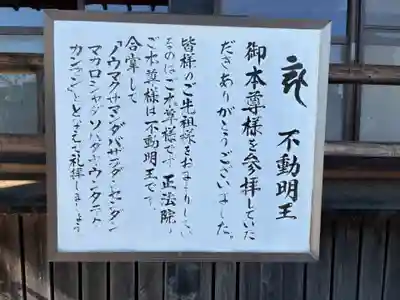 不動明王
御本尊様を参拝していた
だきありがとうございました。
皆様のご先祖様をおまもりしてい
るのはご本尊様です。正法院の
ご本尊様は不動明王です。
合掌して
「ノウマクサマンダバサラダンセンダン
マカロシャダソハタヤウンタラタ
カンマン」ととなえて礼拝しましょう